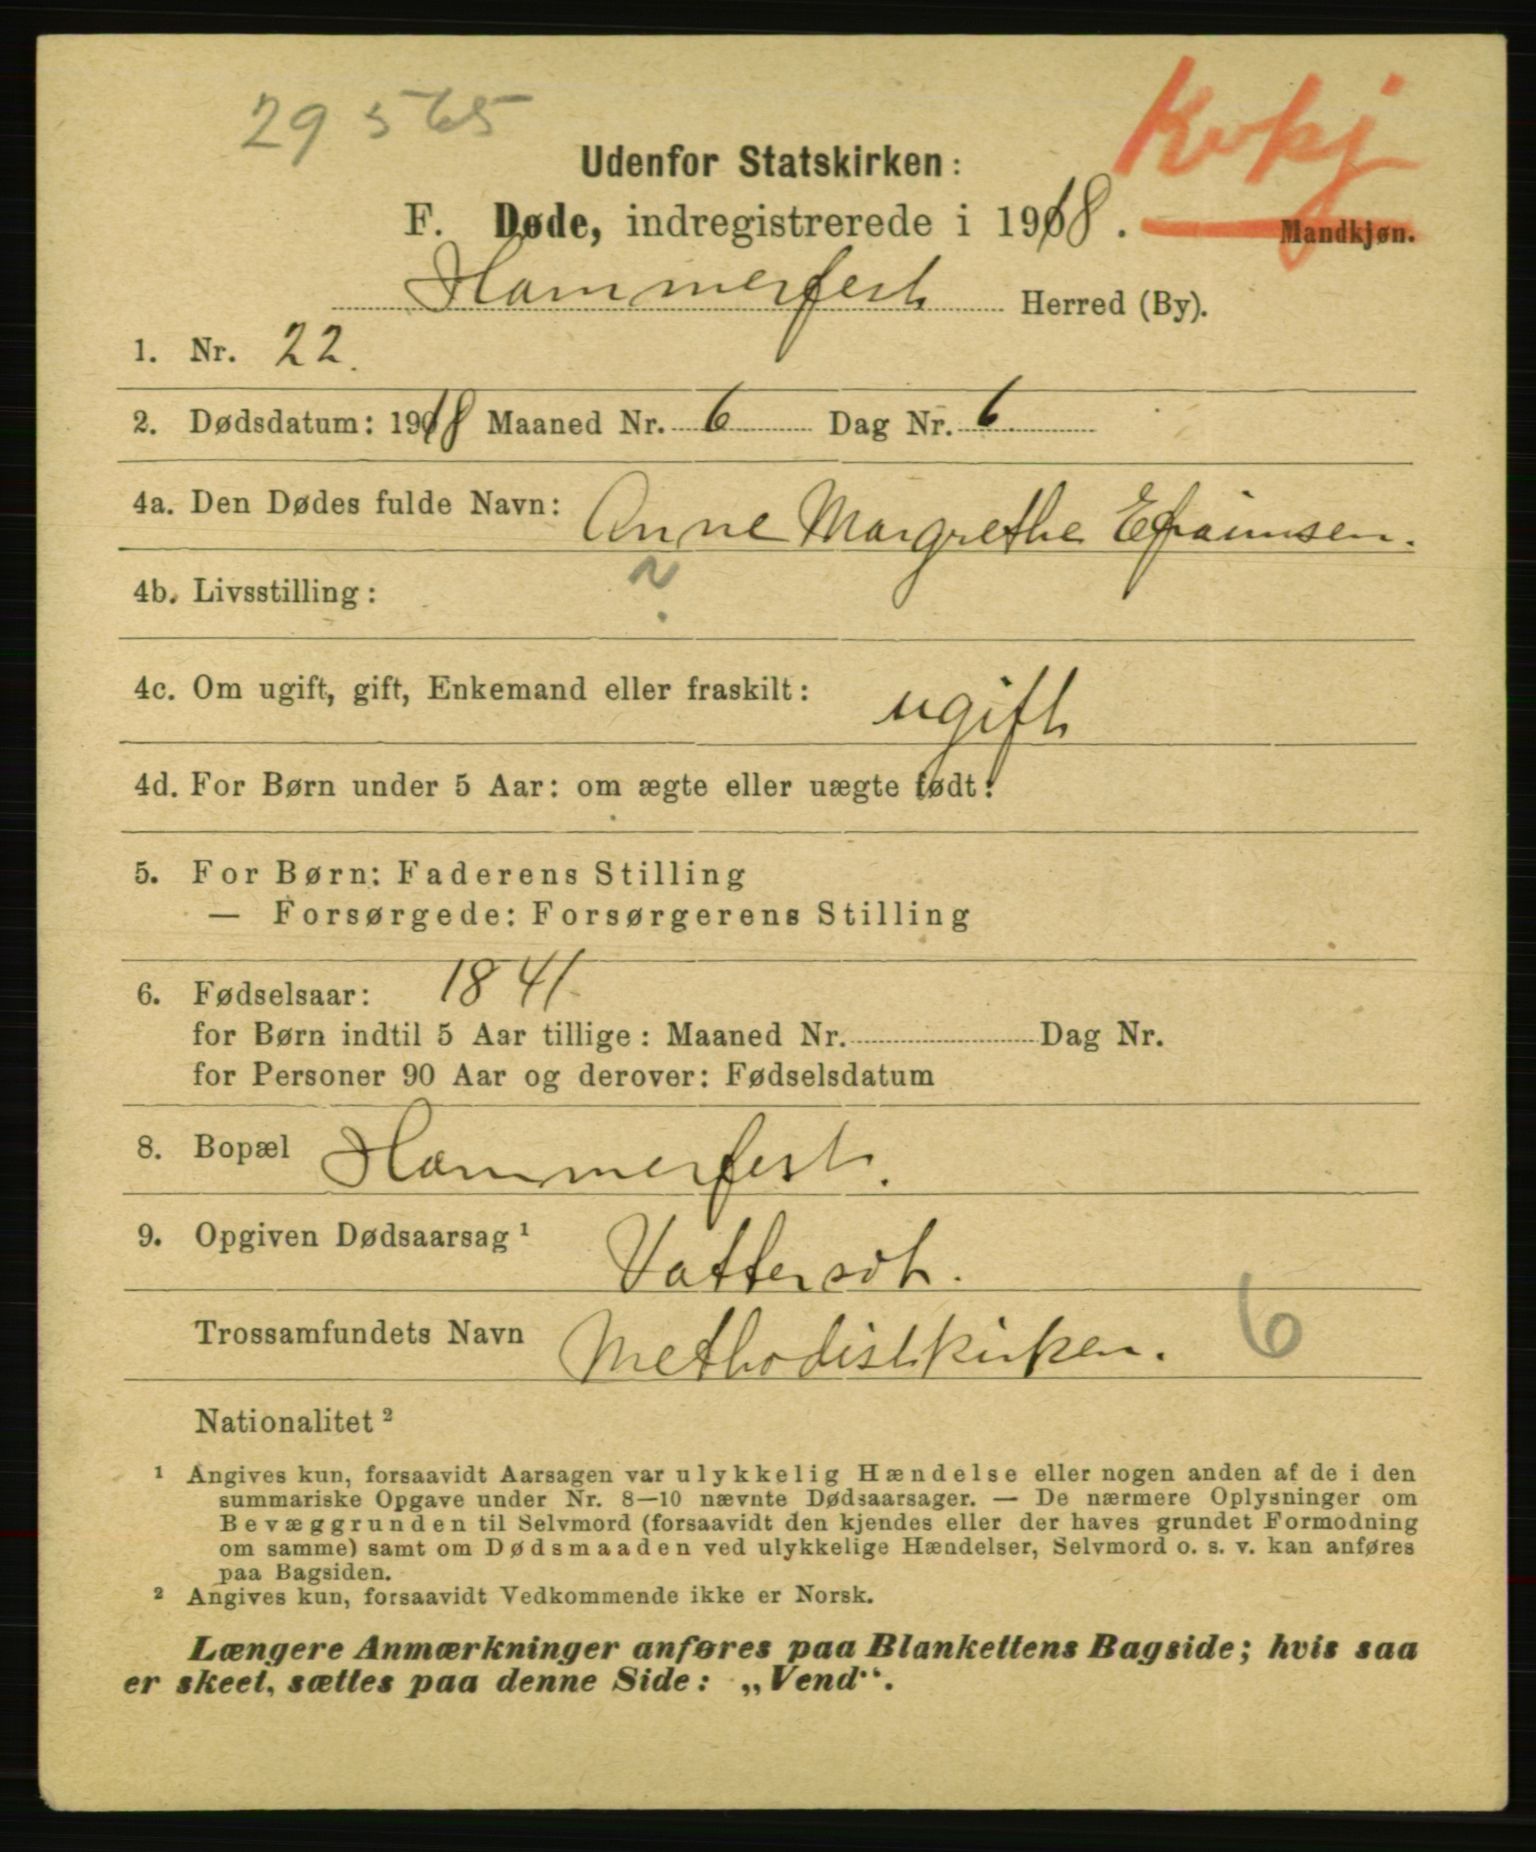 29 565
Kvkj
Udenfor Statskirken:
F. Døde, indregistrerede i 1918.
Mandkjøn.
Hammerfest Herred (By).
1. Nr. 22.
2. Dødsdatum: 1918 Maaned Nr. 6 Dag Nr. 6
4a. Den Dødes fulde Navn: Anne Margrethe Efraimsen.
4b. Livsstilling: ?
4c. Om ugift, gift, Enkemand eller fraskilt: ugift
4d. For Børn under 5 Aar: om ægte eller uægte født:
5. For Børn: Faderens Stilling
— Forsørgede: Forsørgerens Stilling
6. Fødselsaar: 1841
for Børn indtil 5 Aar tillige: Maaned Nr. Dag Nr.
for Personer 90 Aar og derover: Fødselsdatum
8. Bopæl Hammerfest.
9. Opgiven Dødsaarsag ¹ Vattersot.
Trossamfundets Navn Methodistkirken. 6
Nationalitet ²
¹ Angives kun, forsaavidt Aarsagen var ulykkelig Hændelse eller nogen anden af de i den
summariske Opgave under Nr. 8—10 nævnte Dødsaarsager. — De nærmere Oplysninger om
Bevæggrunden til Selvmord (forsaavidt den kjendes eller der haves grundet Formodning
om samme) samt om Dødsmaaden ved ulykkelige Hændelser, Selvmord o. s. v. kan anføres
paa Bagsiden.
² Angives kun, forsaavidt Vedkommende ikke er Norsk.
Længere Anmærkninger anføres paa Blankettens Bagside; hvis saa
er skeet, sættes paa denne Side: „Vend“.